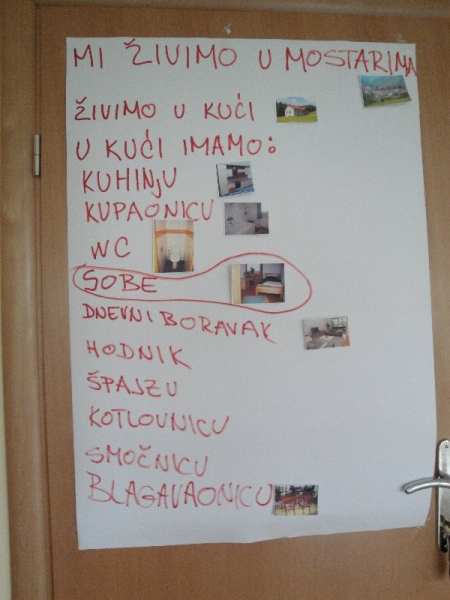 MI ŽIVIMO U MOSTARIMA
ŽIVIMO U KUĆI
U KUĆI IMAMO:
KUHINjU
KUPAONICU
WC
SOBE
DNEVNI BORAVAK
HODNIK
ŠPAJZU
KOTLOVNICU
SMOČNICU
BLAGAVAONICU